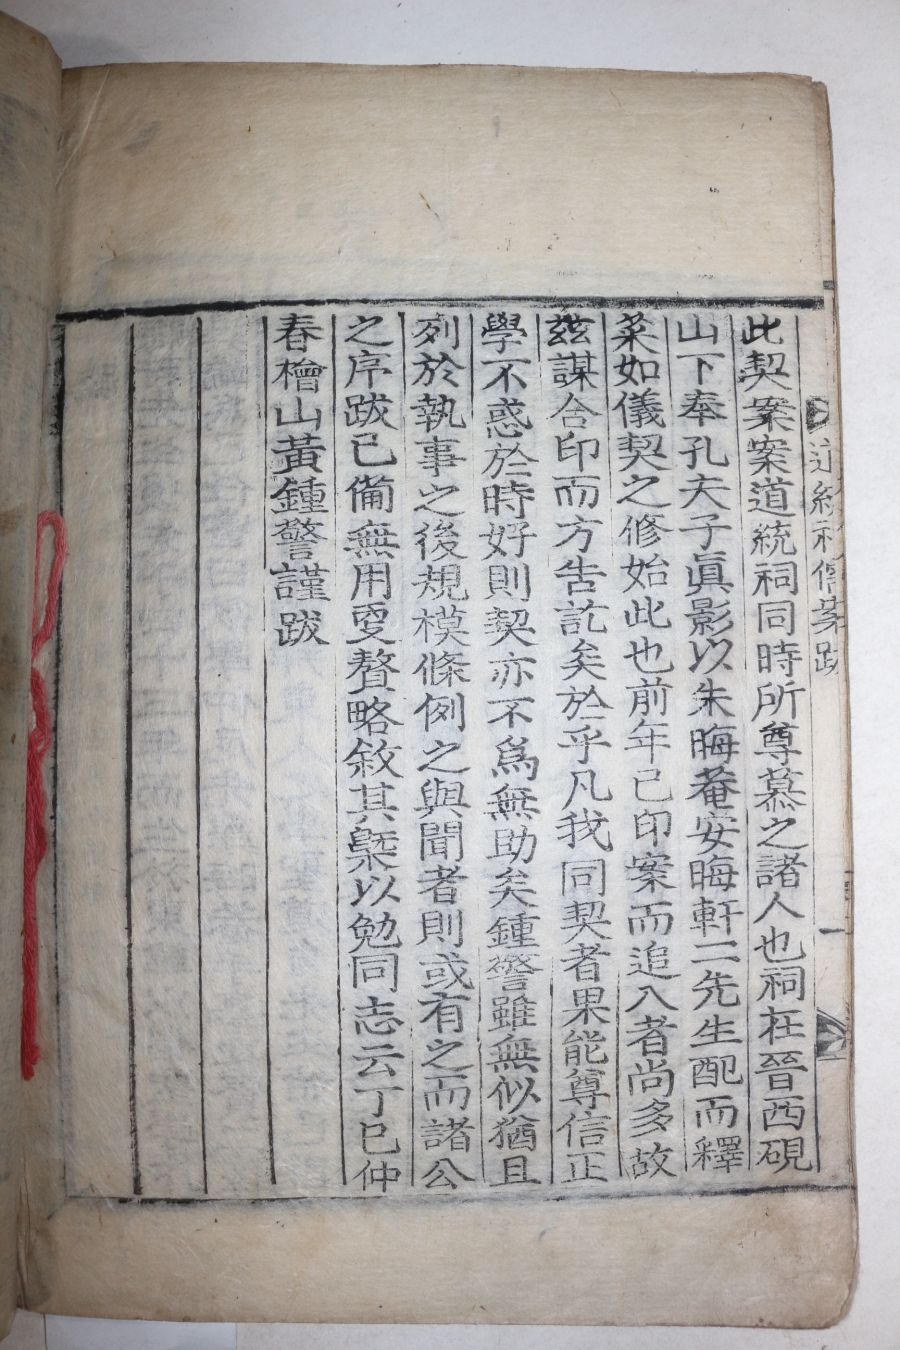 道統祠修案跋
一
此契案案道統祠同時所尊慕之諸人也祠在晉西硯
山下奉孔夫子眞影以朱晦菴安晦軒二先生配而釋
菜如儀契之修始此也前年已印案而追入者尚多故
玆謀合印而方告訖矣於乎凡我同契者果能尊信正
學不惑於時好則契亦不爲無助矣鍾警雖無似猶且
列於執事之後規模條例之與聞者則或有之而諸公
之序跋已備無用更贅略敘其槩以勉同志云丁巳仲
春檜山黃鍾警謹跋